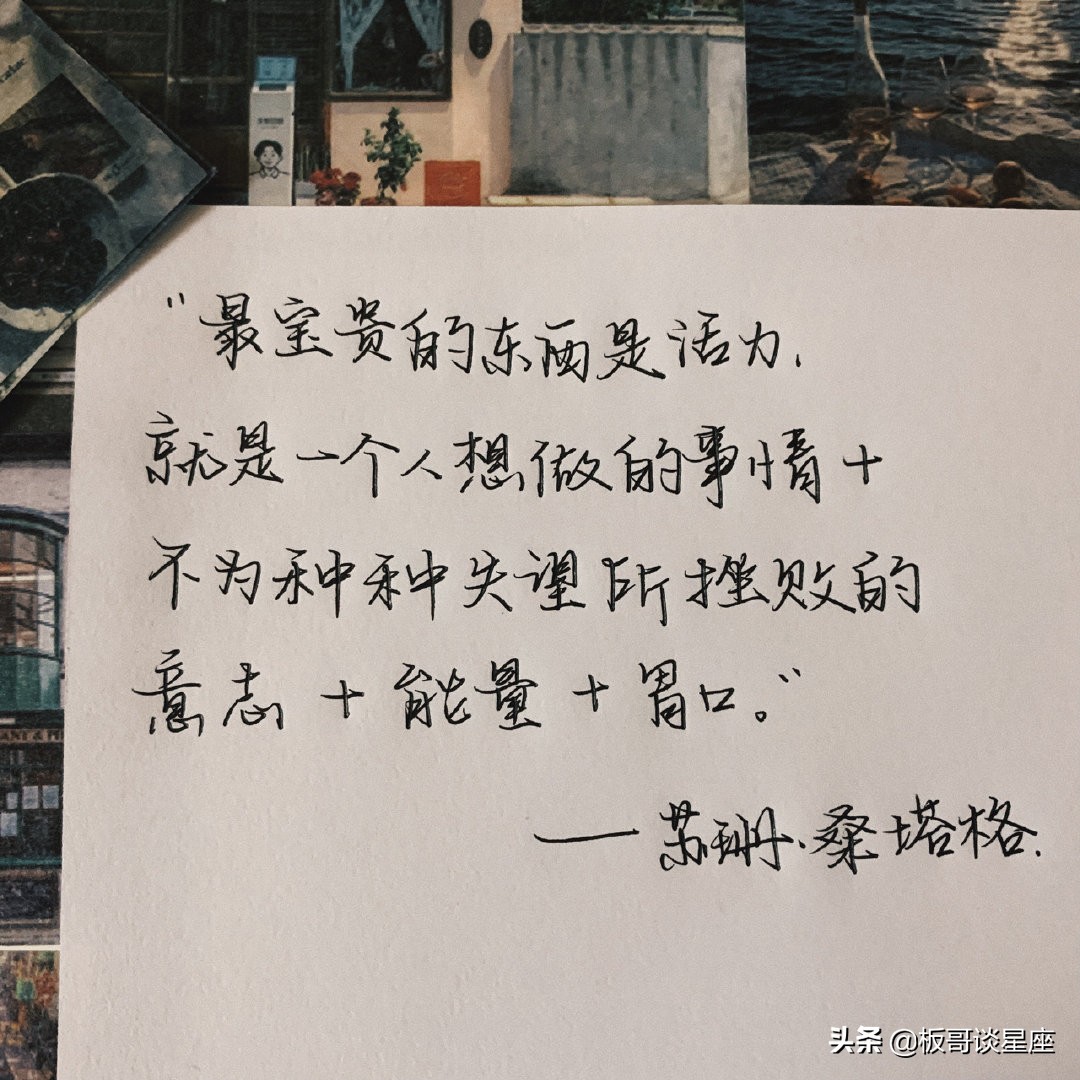 “最宝贵的东西是活力,
就是一个人想做的事情+
不为种种失望所挫败的
意志+能量+胃口。”
——苏珊·桑塔格.
头条 @板哥谈星座